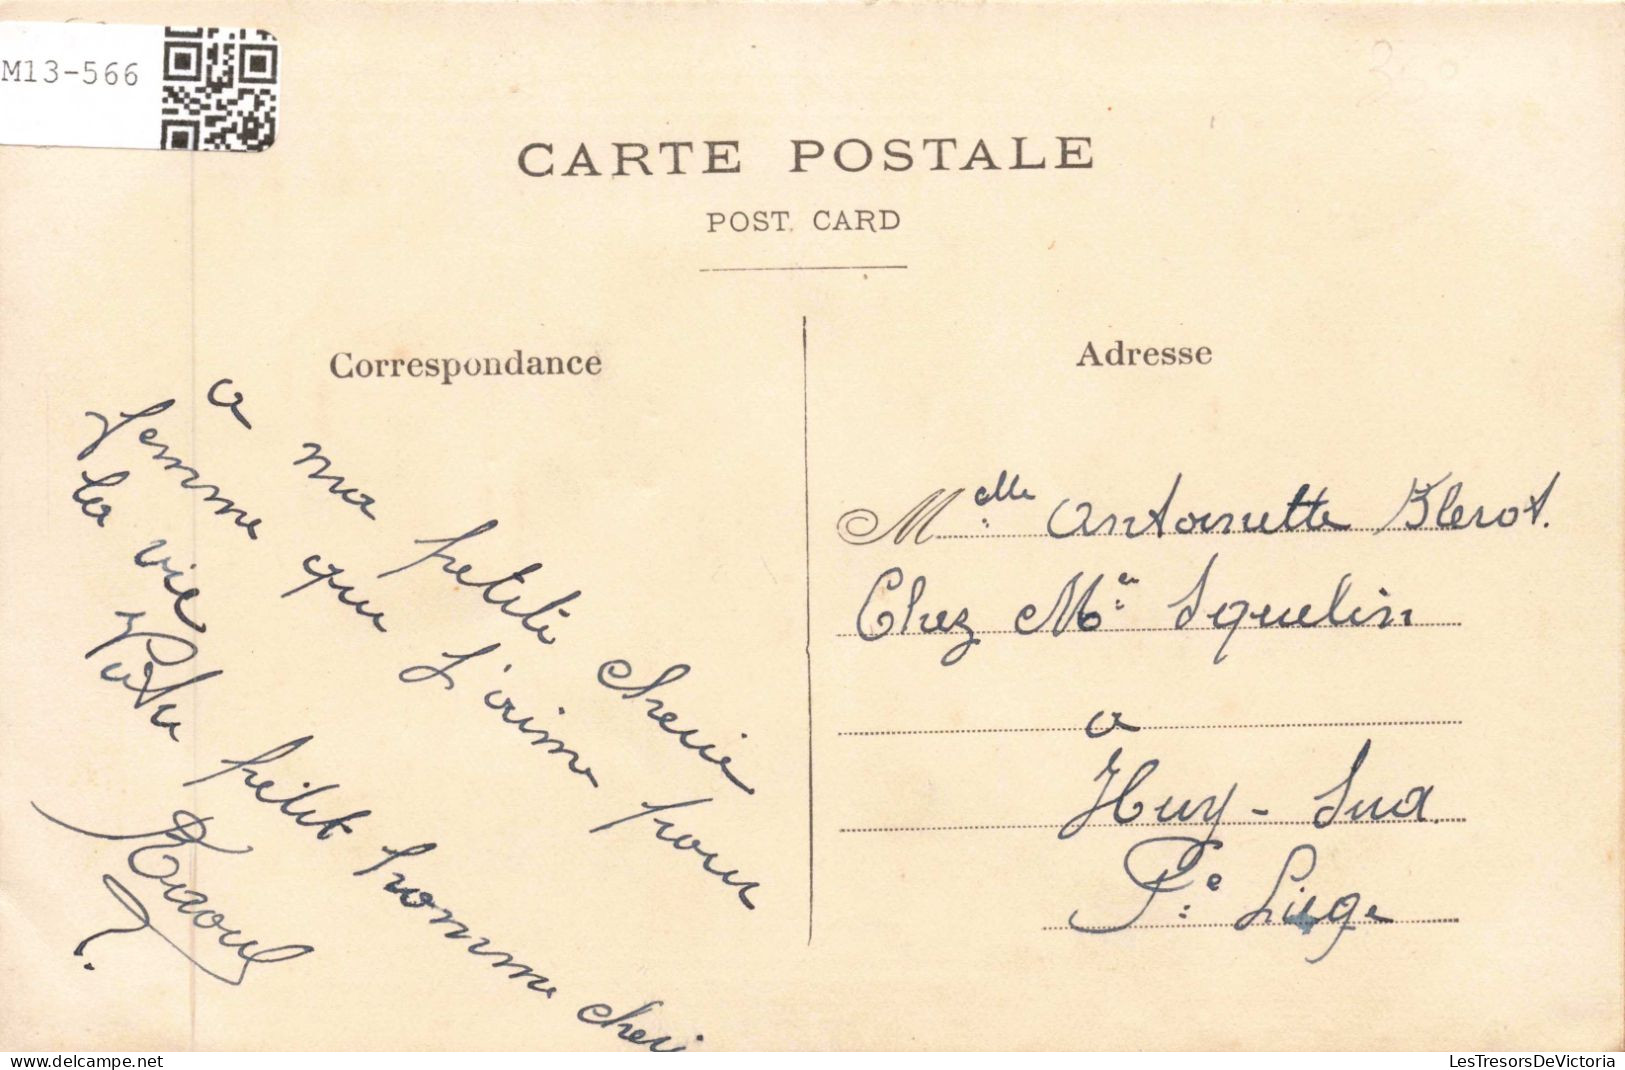 M13-566
CARTE POSTALE
POST CARD
Correspondance
a ma petite cherie
femme que j'aime pour
la vie
Votre petit homme cheri
Raoul
Adresse
Melle Antoinette Blerot.
Chez Mr Squelin
a
Huy - Sud
Pce Liège
LesTresorsDeVictoria